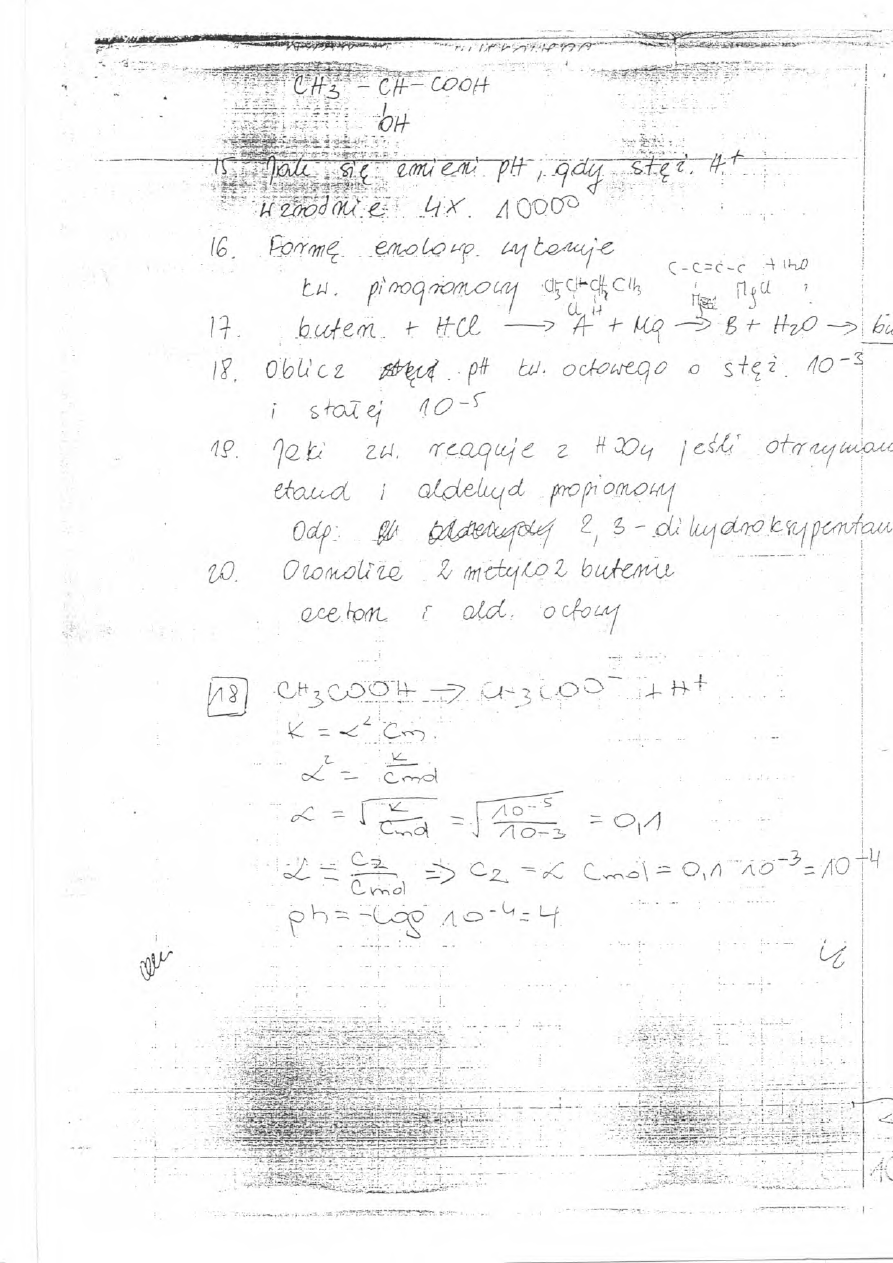 CH3 - CH - COOH
OH
15 Jak się zmieni pH, gdy stęż. H+
wzrośnie 4x. 10000
16. Formę enolową wykazuje
kw. pirogronowy CH3CH-CH2CH3 C-C=C-C + H2O
Cl H MgCl ?
17. buten + HCl → A + Mg → B + H2O → bu
18. Oblicz pH kw. octowego o stęż. 10-3
i stałej 10-5
19. Jaki zw. reaguje z HJO4 jeśli otrzyman
etanal i aldehyd propionowy
Odp: 2,3-dihydroksypentan
20. Ozonoliza 2 metylo 2 butenu
aceton i ald. octowy
18 CH3COOH → CH3COO- + H+
K = α2 Cm
α2 = K/Cmol
α = √K/Cmol = √10-5/10-3 = 0,1
α = Cz/Cmol => Cz = α Cmol = 0,1 10-3 = 10-4
ph = -log 10-4 = 4